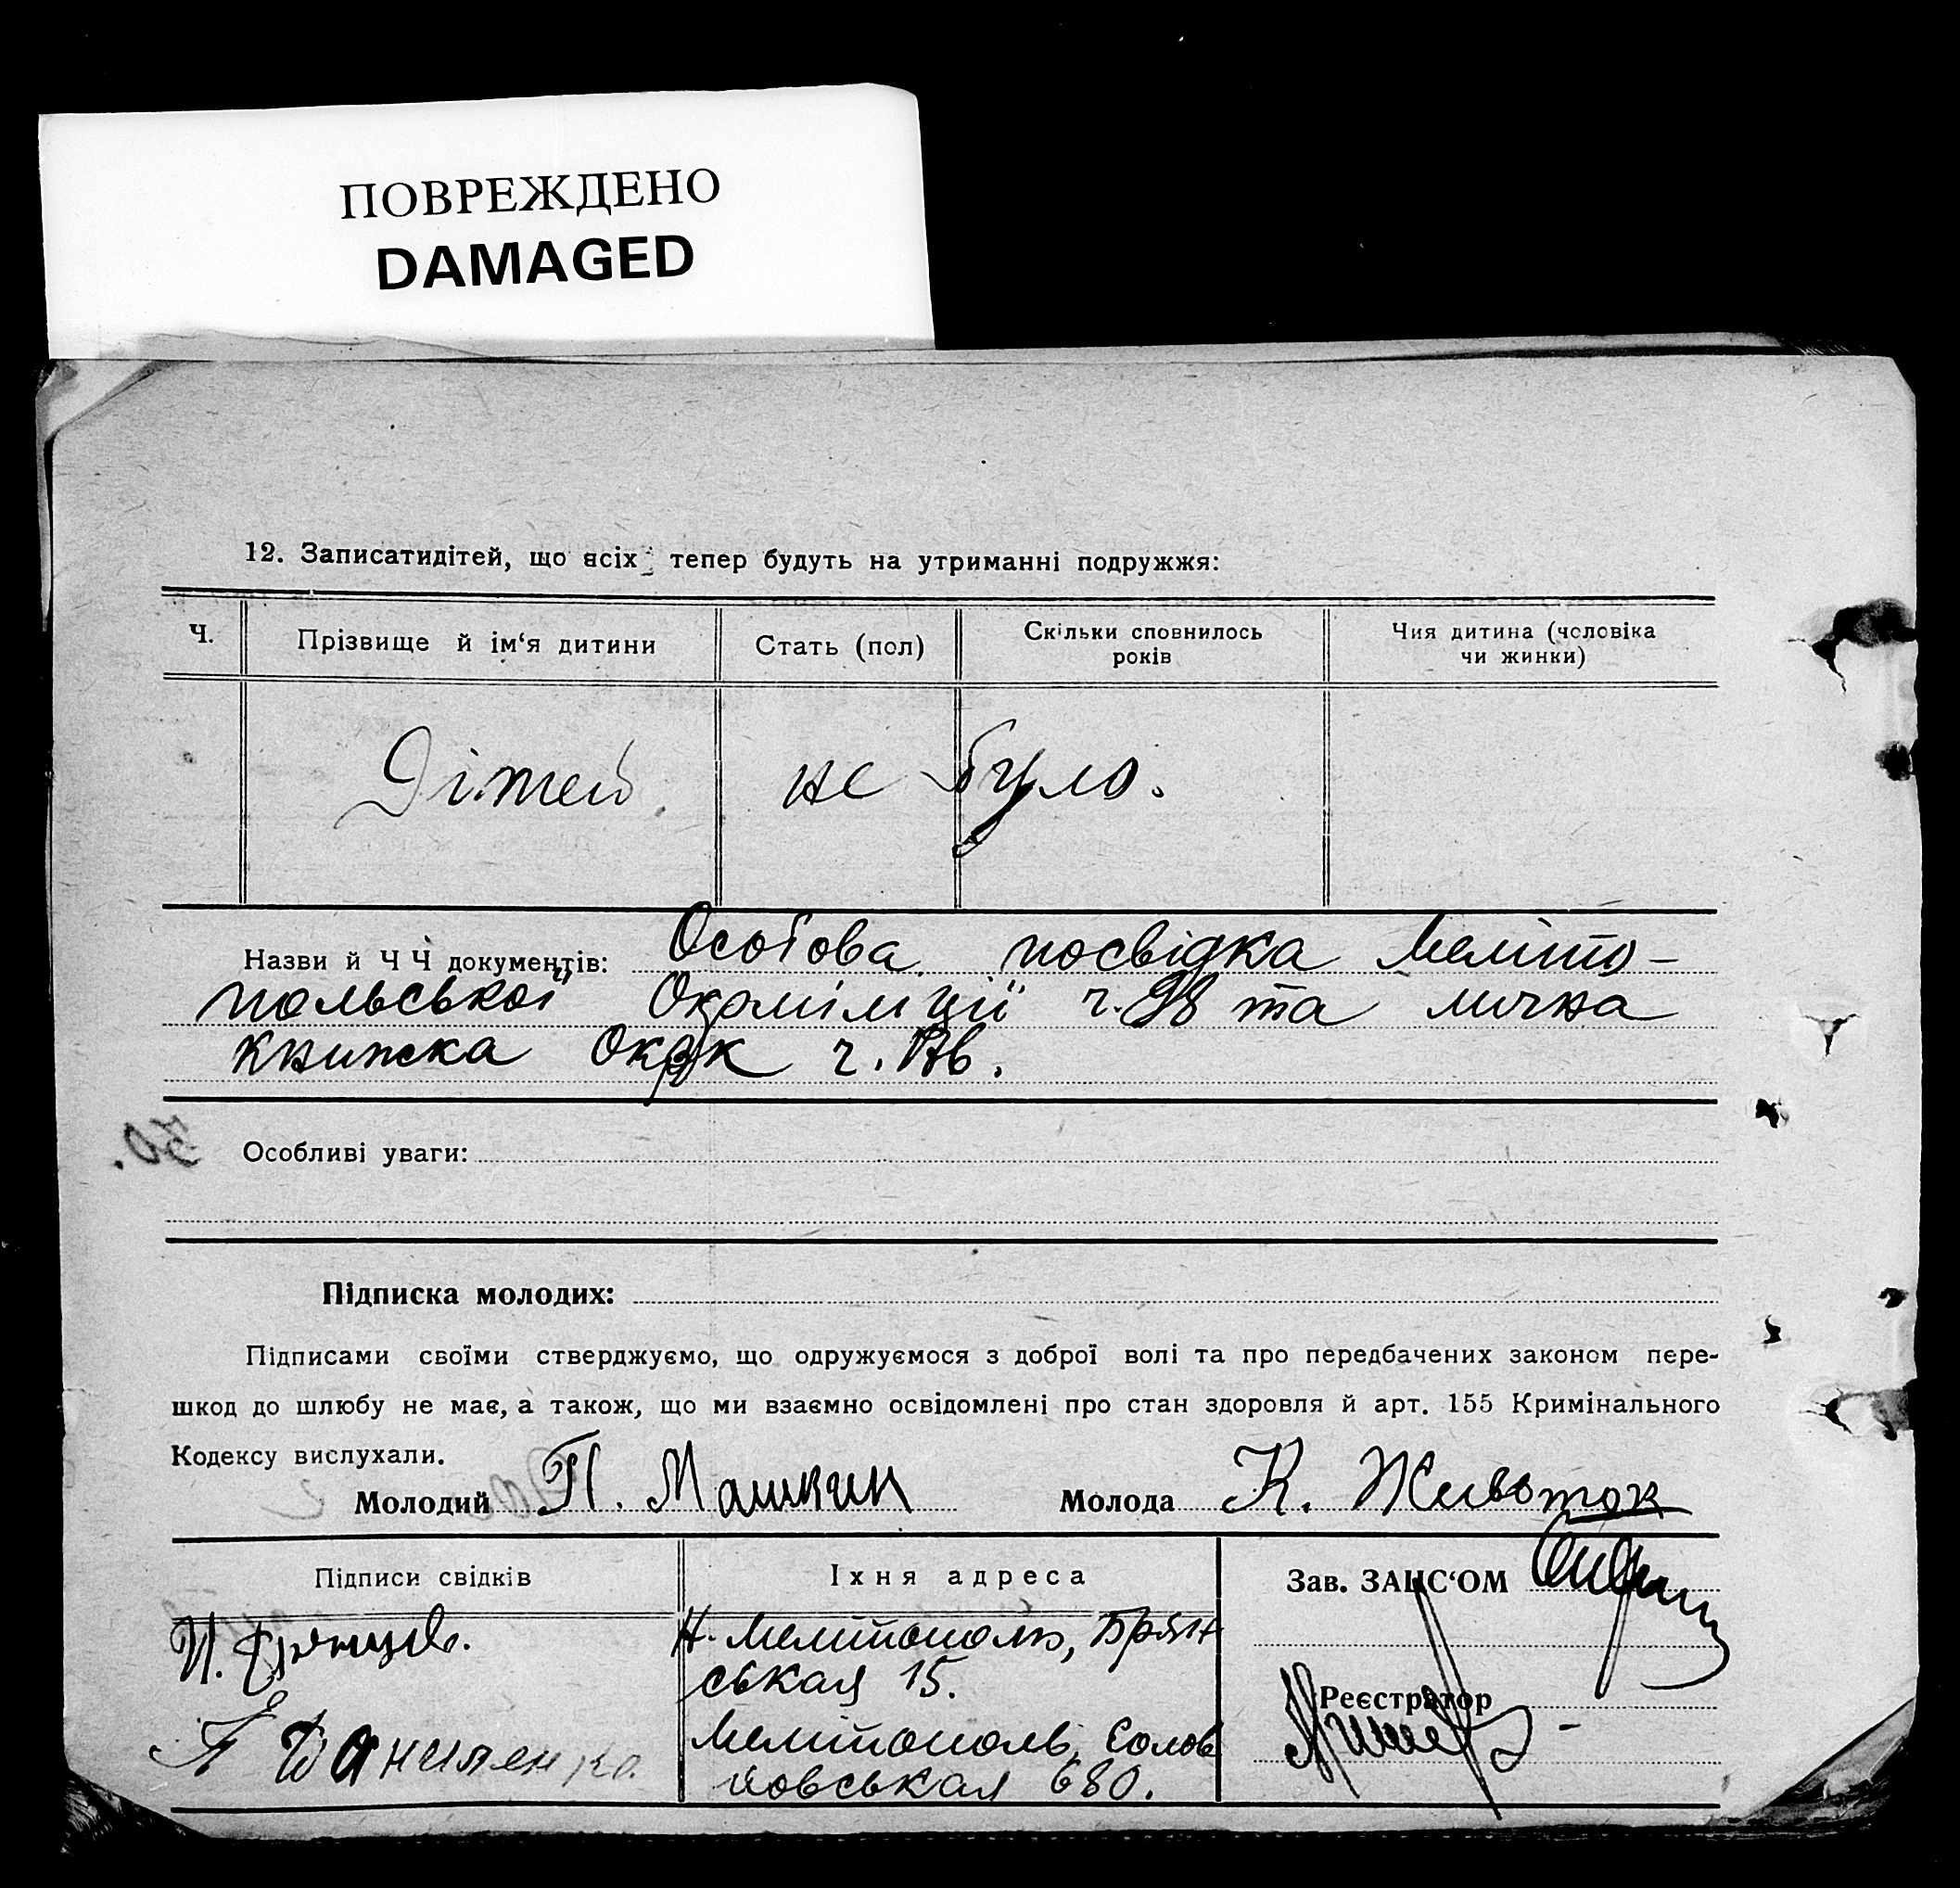 ПОВРЕЖДЕНО
DAMAGED
12. Записатидітей, що всіх тепер будуть на утриманні подружжя:
Ч.
Прізвище й ім‘я дитини
Стать (пол)
Скільки сповнилось
років
Чия дитина (чоловіка
чи жинки)
Дітей не було.
Назви й Ч Ч документів: Особова посвідка Меліто-
польської Окрміліції ч. 98 та лична
книжка ч.
Особливі уваги:
50.
Підписка молодих:
Підписами своїми стверджуємо, що одружуємося з доброї волі та про передбачених законом пере-
шкод до шлюбу не має, а також, що ми взаємно освідомлені про стан здоровля й арт. 155 Кримінального
Кодексу вислухали.
Молодий П. Машкин Молода К. Животок
Підписи свідків
Їхня адреса
Зав. ЗАЦС‘ОМ
Мелітополь, Брян
ськая 15.
Реєстратор
Даниленко
Мелітополь, Солов
йовськая 680.